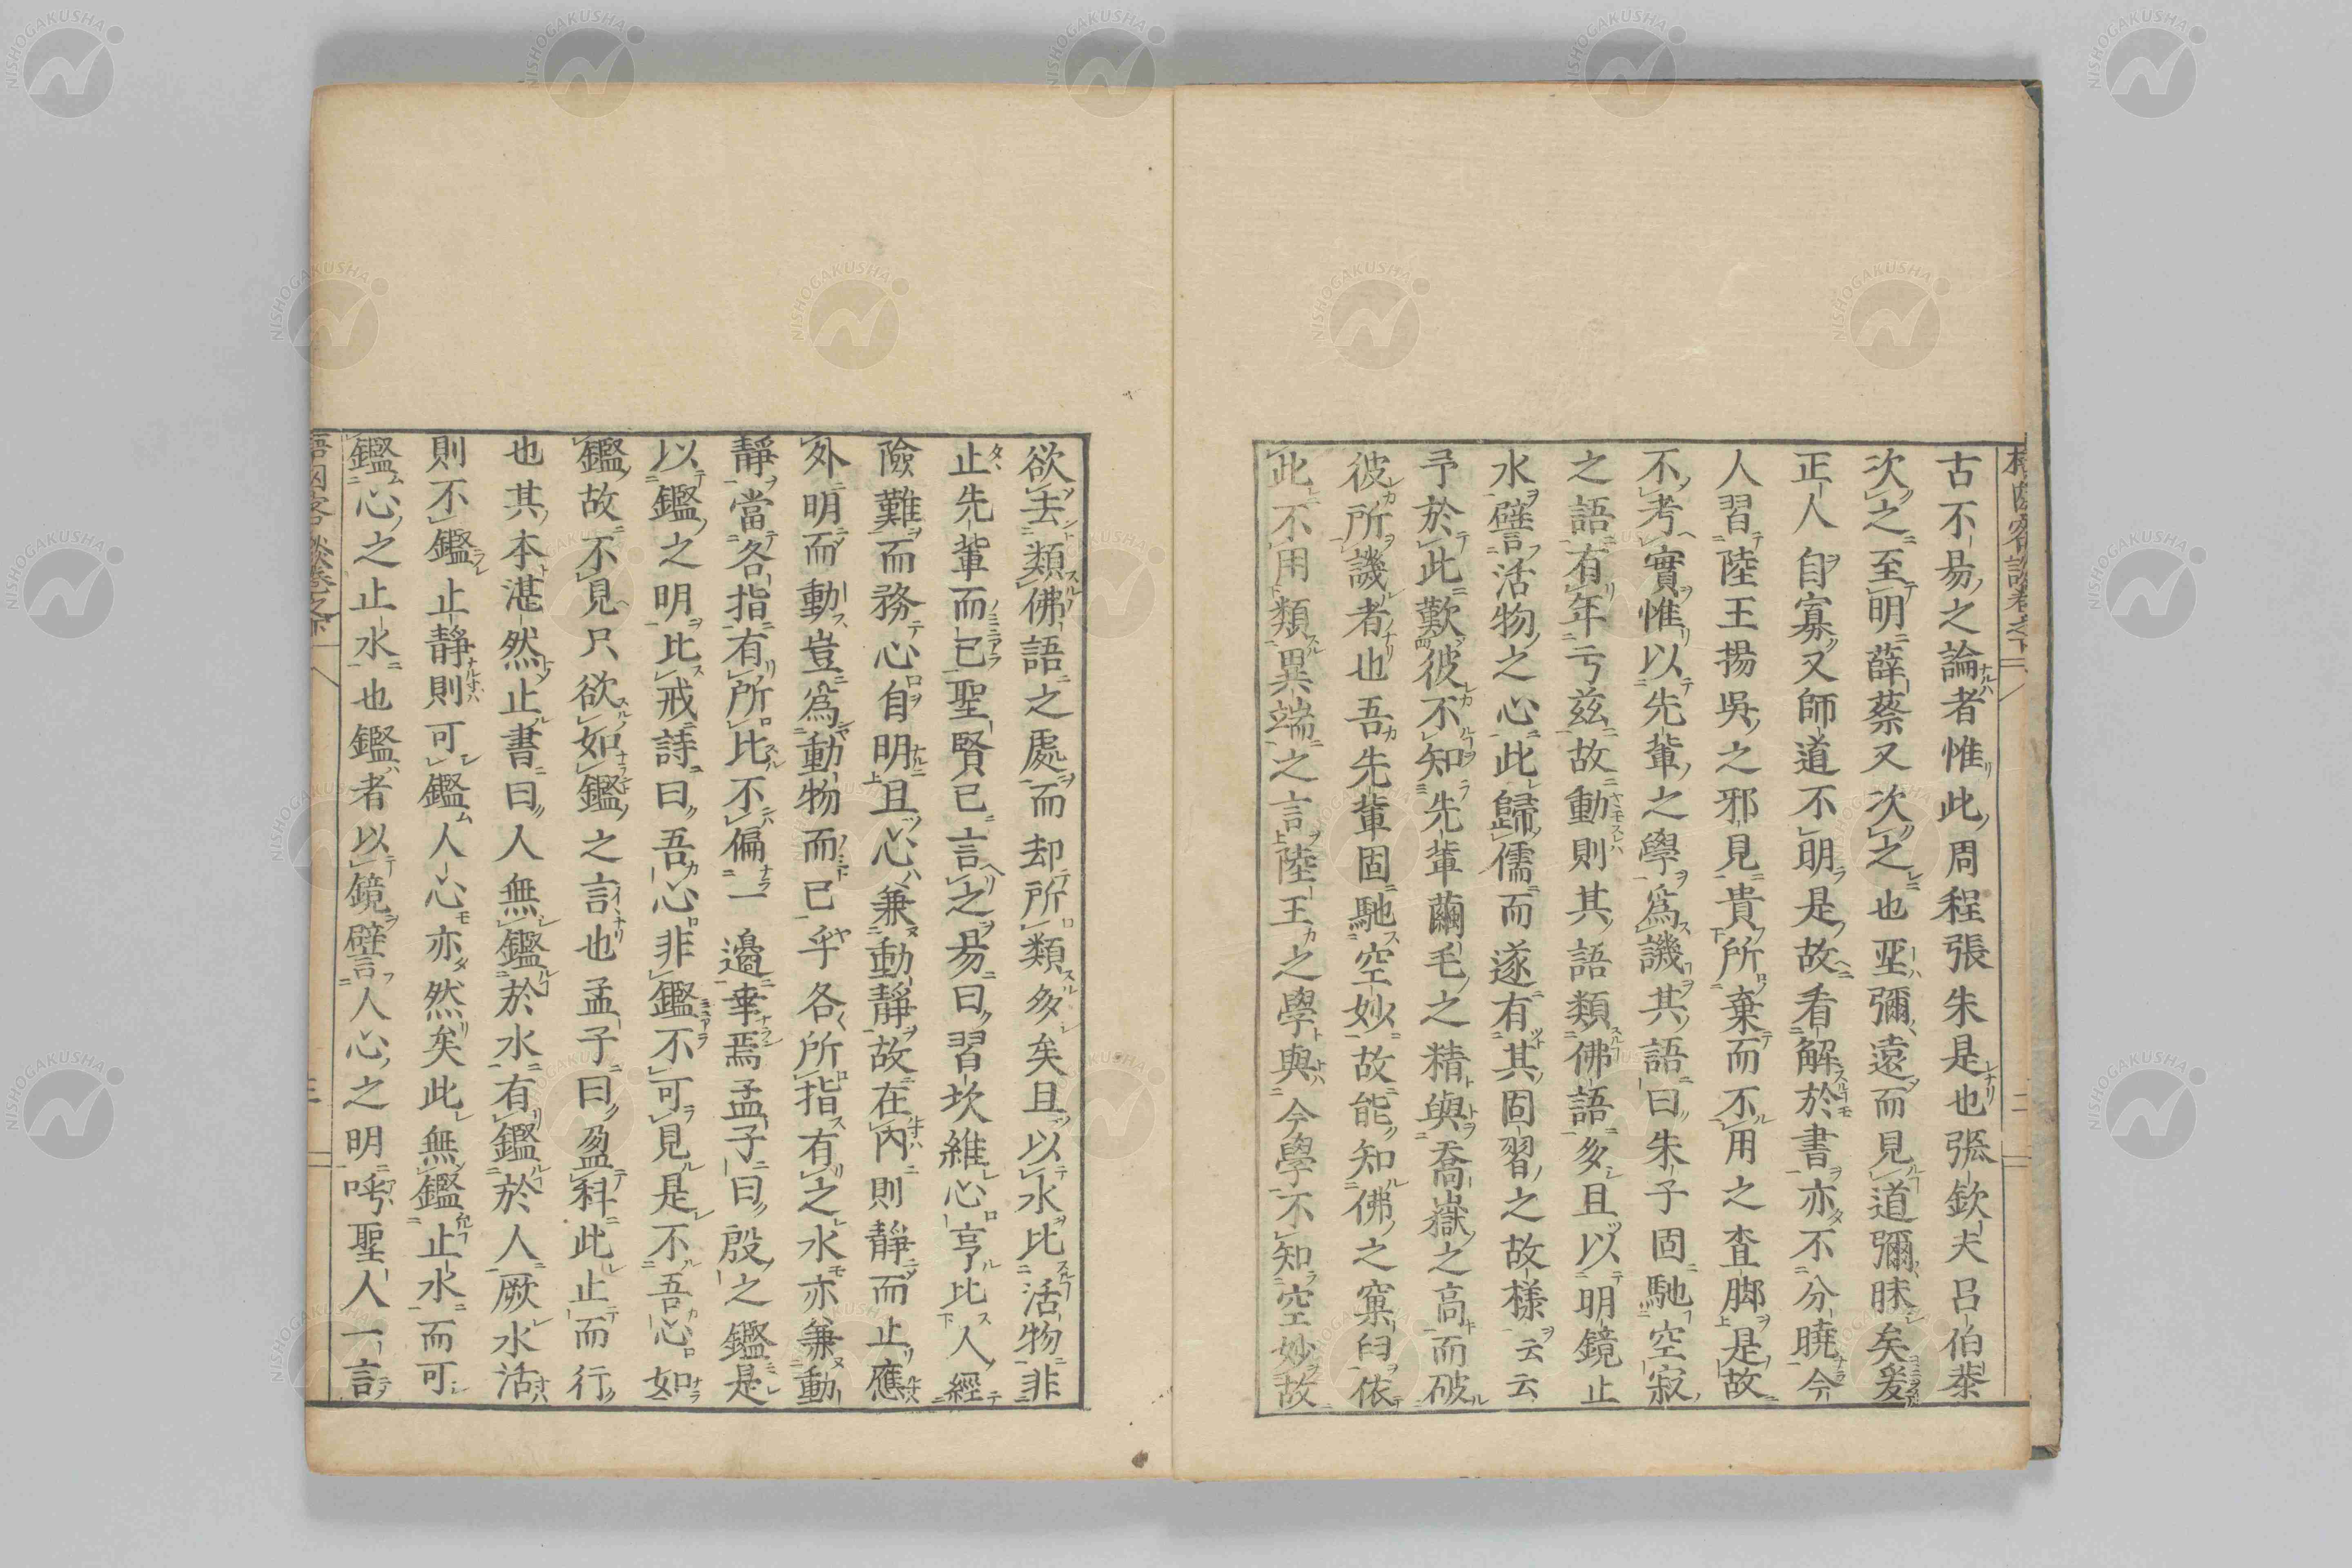 古不易之論者惟此周程張朱是也張欽夫呂伯恭
次之至明薛蔡又次之也至彌遠而見道彌昧矣爰
正人自寡又師道不明是故看解於書亦不分曉今
人習陸王揚吳之邪見貴所棄而不用之査脚是故
不考實惟以先輩之學爲譏其語曰朱子固馳空寂
之語有年亏茲故動則其語類佛語多且以明鏡止
水譬活物之心此歸儒而遂有其固習之故樣云云
予於此歎彼不知先輩繭毛之精與喬嶽之高而破
彼所譏者也吾先輩固馳空妙故能知佛之窠臼依
此不用類異端之言陸王之學與今學不知空妙故
欲去類佛語之處而却所類多矣且以水比活物非
止先輩而已聖賢已言之昜曰習坎維心亨比人經
險難而務心自明且心兼動靜故在內則靜而止應
外明而動豈爲動物而已乎各所指有之水亦兼動
靜當各指有所比不偏一邊幸焉孟子曰殷之鑑是
以鑑之明比戒詩曰吾心非鑑不可見是不吾心如
鑑故不見只欲如鑑之言也孟子曰盈科此止而行
也其本湛然止書曰人無鑑於水有鑑於人厥水活
則不鑑止靜則可鑑人心亦然矣此無鑑止水而可
鑑心之止水也鑑者以鏡譬人心之明呼聖人一言
NISHOGAKUSHA